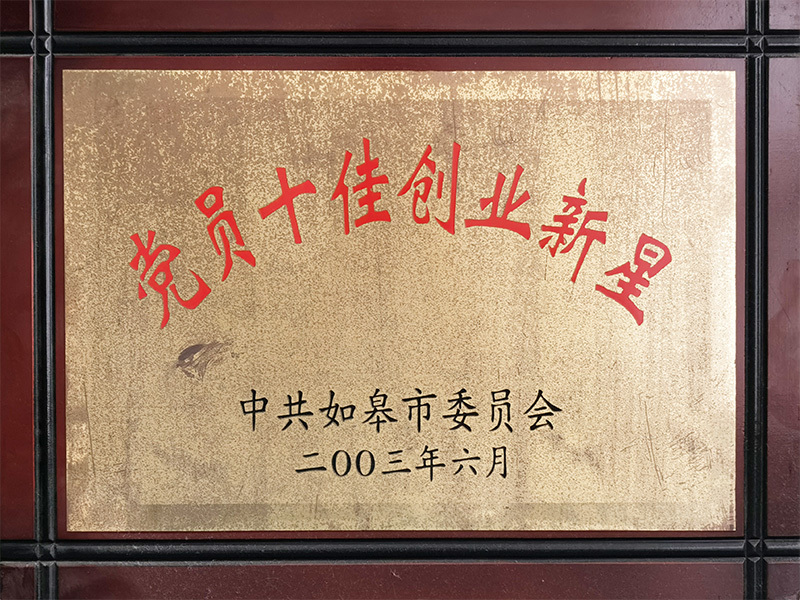 党员十佳创业新星
中共如皋市委员会
二〇〇三年六月